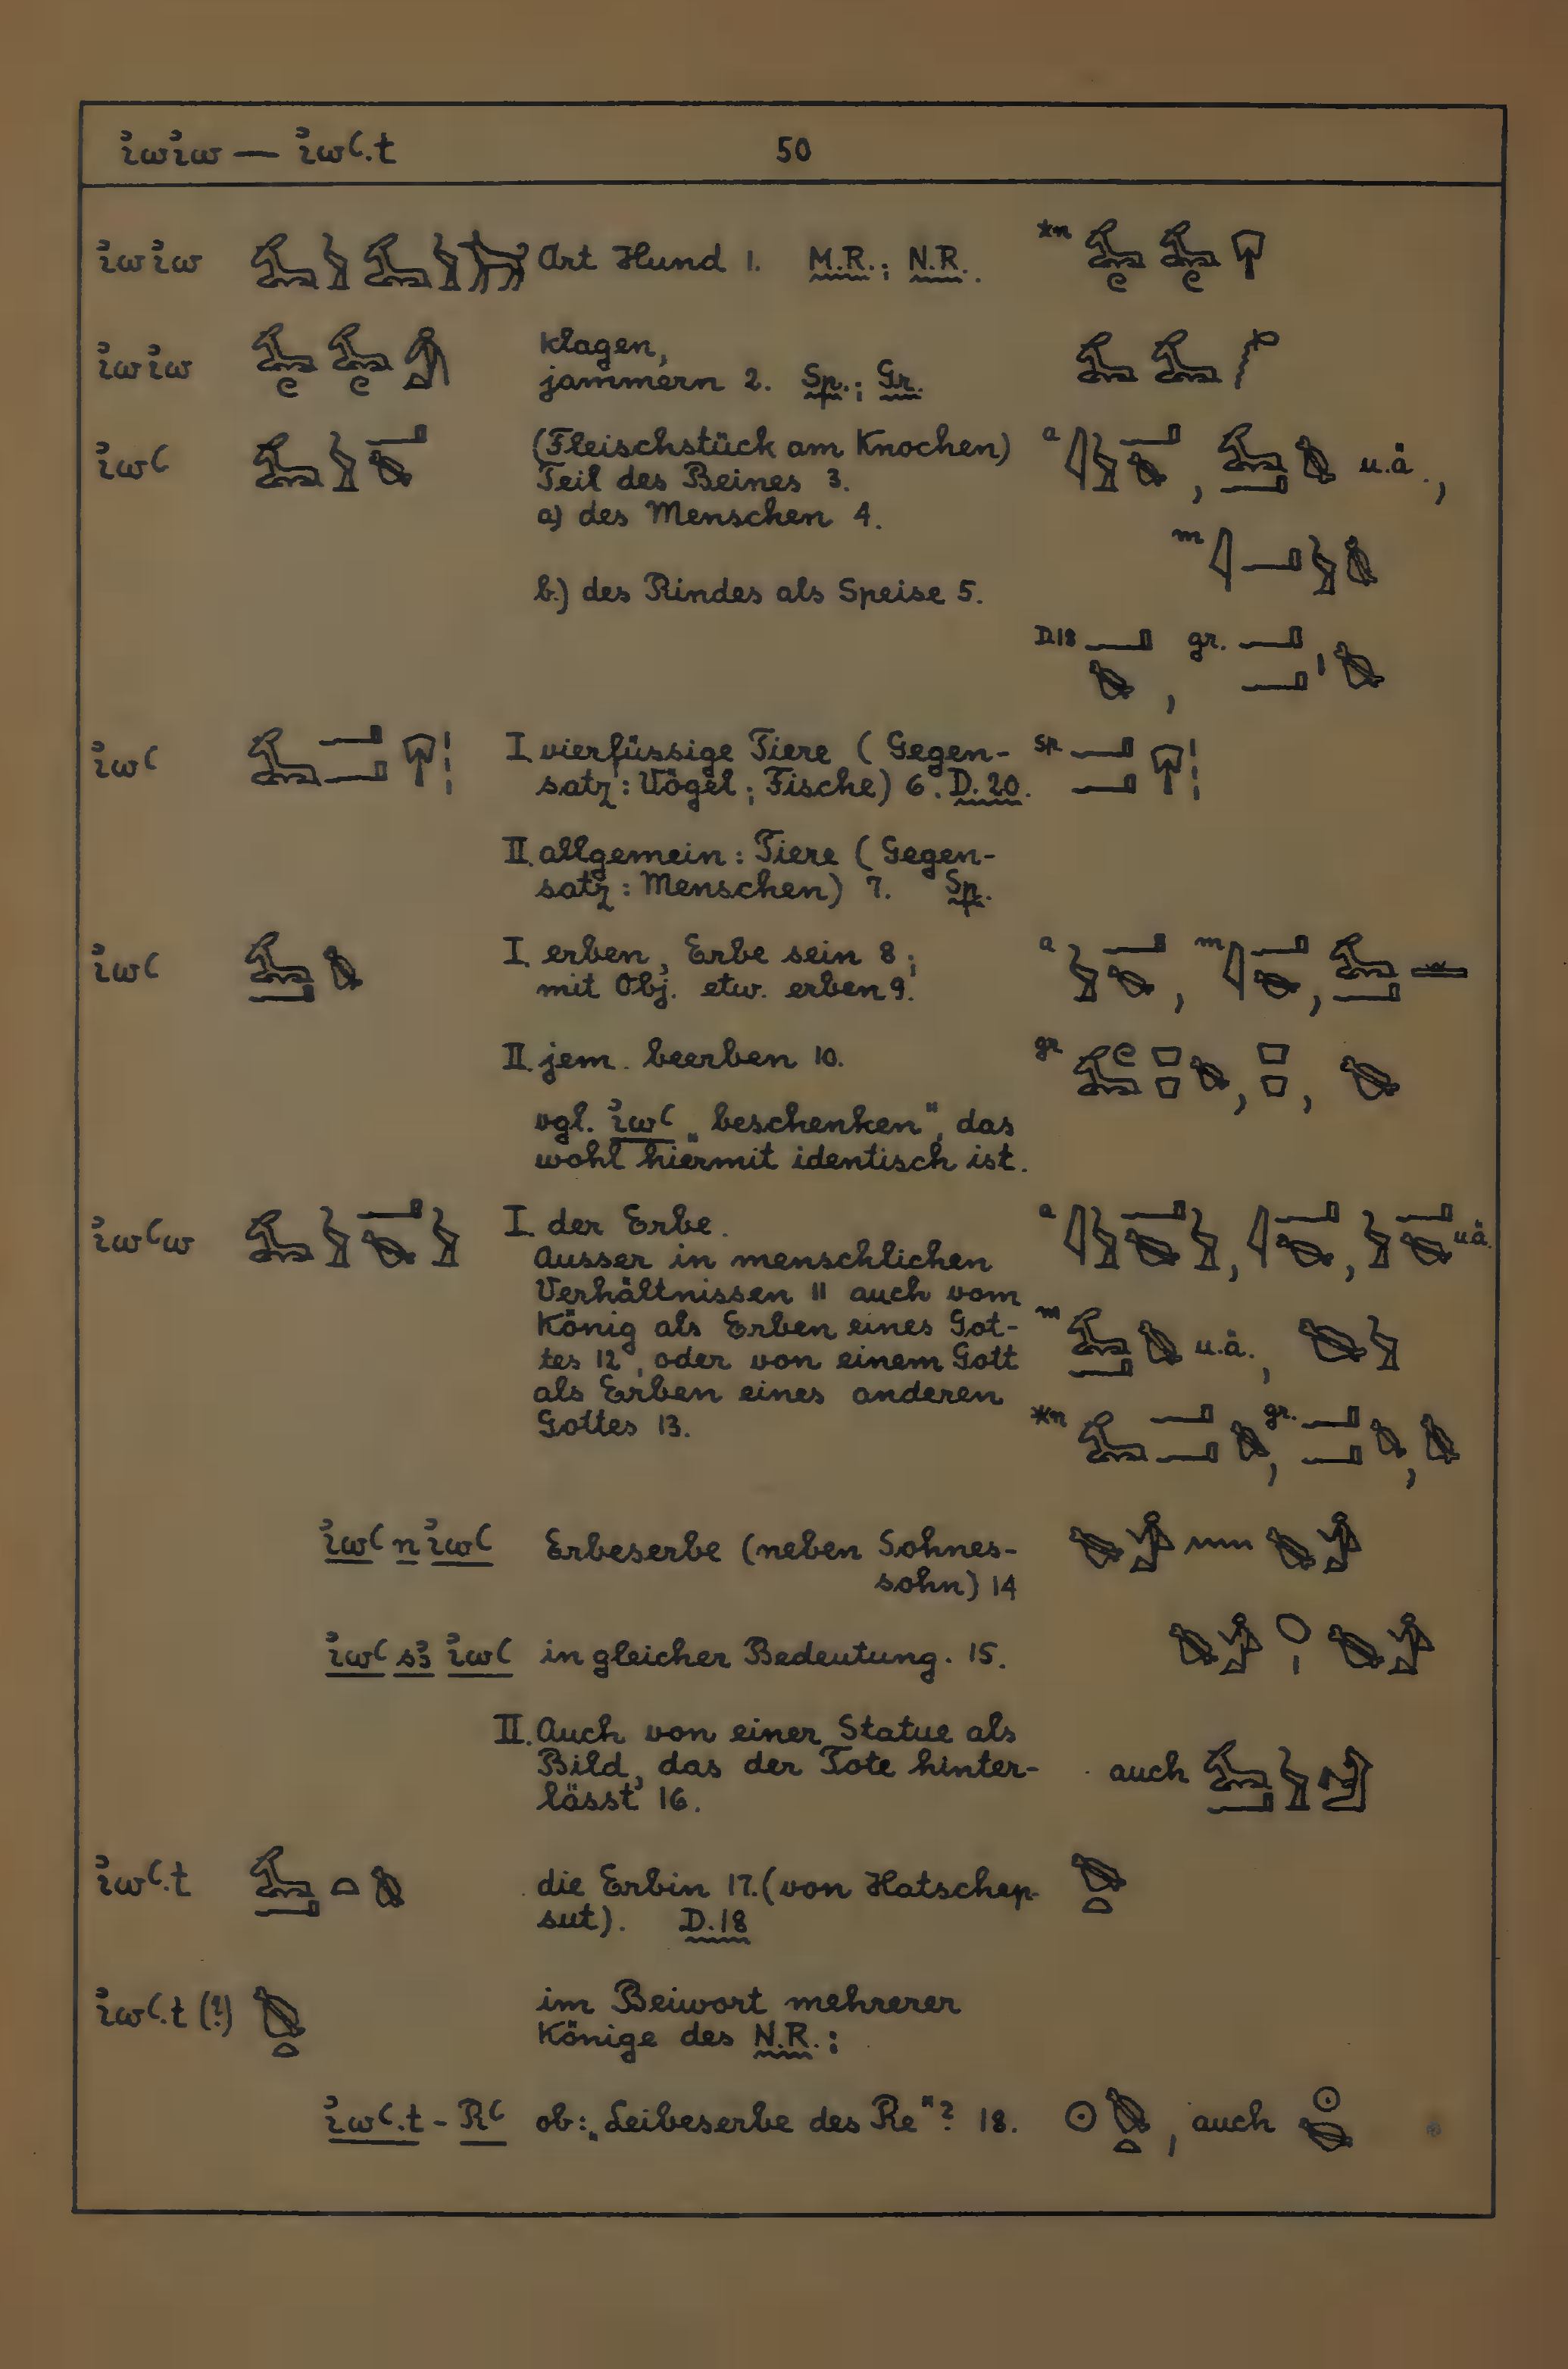 ꞽwꞽw — ꞽwꜥ.t 50
ꞽwꞽw Art Hund 1. M.R.; N.R. *n
ꞽwꞽw klagen,
jammern 2. Sp.; Gr.
ꞽwꜥ (Fleischstück am Knochen) a , u.ä.,
Teil des Beines 3.
a) des Menschen 4.
m
b.) des Rindes als Speise 5.
D.18 , gr. ,
ꞽwꜥ I. vierfüssige Tiere (Gegen- Sp.
satz: Vögel; Fische) 6. D.20.
II. allgemein: Tiere (Gegen-
satz: Menschen) 7. Sp.
ꞽwꜥ I. erben, Erbe sein 8; a , m ,
mit Obj. etw. erben 9.
II. jem. beerben 10. gr. , ,
vgl. ꞽwꜥ „beschenken", das
wohl hiermit identisch ist.
ꞽwꜥw I. der Erbe. a , , u.ä.
Ausser in menschlichen
Verhältnissen 11 auch vom
König als Erben eines Got- m u.ä.,
tes 12, oder von einem Gott
als Erben eines anderen
Gottes 13. *n , gr. ,
ꞽwꜥ n ꞽwꜥ Erbeserbe (neben Sohnes-
sohn) 14
ꞽwꜥ sꜣ ꞽwꜥ in gleicher Bedeutung. 15.
II. Auch von einer Statue als
Bild, das der Tote hinter- auch
lässt 16.
ꞽwꜥ.t die Erbin 17. (von Hatschep-
sut). D.18
ꞽwꜥ.t (?) im Beiwort mehrerer
Könige des N.R.:
ꞽwꜥ.t - Rꜥ ob: „Leibeserbe des Re"? 18. , auch